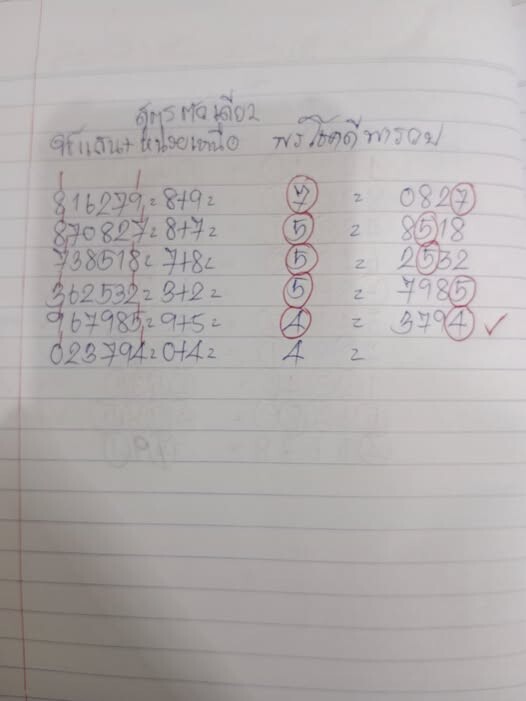 สูตรตัวเดียว
หลักแสน+หน่วยเหนือ พรโชคดีพารวย
816279=8+9= 7 = 0827
870827=8+7= 5 = 8518
738518=7+8= 5 = 2532
362532=3+2= 5 = 7985
967985=9+5= 4 = 3794 ✓
023794=0+4= 4 =